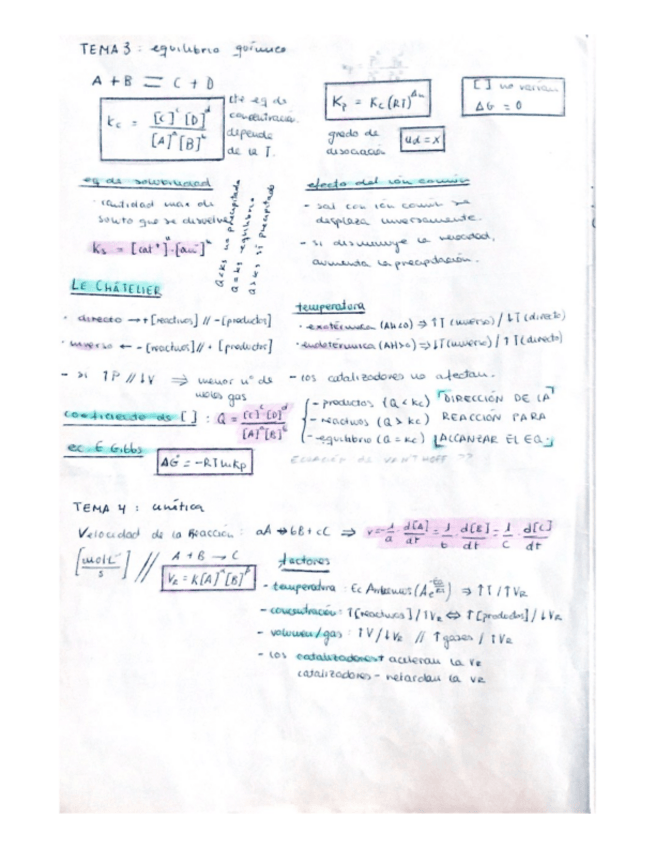 TEMA 3: equilibrio químico
A + B ⇌ C + D
Kc = [C]^c [D]^d / [A]^a [B]^b
cte eq de
concentración.
depende
de la T.
Kp = Kc (RT)^Δn
grado de
disociación
nα = x
[ ] no varían
ΔG = 0
eq de solubilidad
· cantidad max de
soluto que se disuelve
Ks = [cat⁺]^a · [an⁻]^b
Q<Ks no precipitado
Q = Ks equilibrio
Q>Ks sí precipitado
efecto del ión común
- sal con ión común se
desplaza inversamente.
- si disminuye la velocidad,
aumenta la precipitación.
LE CHÂTELIER
· directo → + [reactivos] // - [productos]
· inverso ← - [reactivos] // + [productos]
- si ↑P // ↓V ⇒ menor nº de
moles gas
temperatura
· exotérmica (ΔH<0) ⇒ ↑T (inverso) / ↓T (directo)
· endotérmica (ΔH>0) ⇒ ↓T (inverso) / ↑T (directo)
- los catalizadores no afectan.
cociente de [ ] : Q = [C]^c [D]^d / [A]^a [B]^b
- productos (Q < Kc)
- reactivos (Q > Kc)
- equilibrio (Q = Kc)
DIRECCIÓN DE LA
REACCIÓN PARA
ALCANZAR EL EQ.
ec. E Gibbs
ΔG = -RT ln Kp
ECUACIÓN DE VAN'T HOFF ??
TEMA 4: cinética
Velocidad de la Reacción: aA → bB + cC ⇒ v = -1/a · d[A]/dt = 1/b · d[B]/dt = 1/c · d[C]/dt
[mol L⁻¹ / s] // A + B → C
VR = K[A]^a [B]^b
factores
- temperatura: Ec Arrhenius (Ae^(-Ea/RT)) ⇒ ↑T / ↑VR
- concentración: ↑[reactivos] / ↑VR ⇔ ↑[productos] / ↓VR
- volumen/gas: ↑V / ↓VR // ↑gases / ↑VR
- los catalizadores + aceleran la VR
catalizadores - retardan la VR